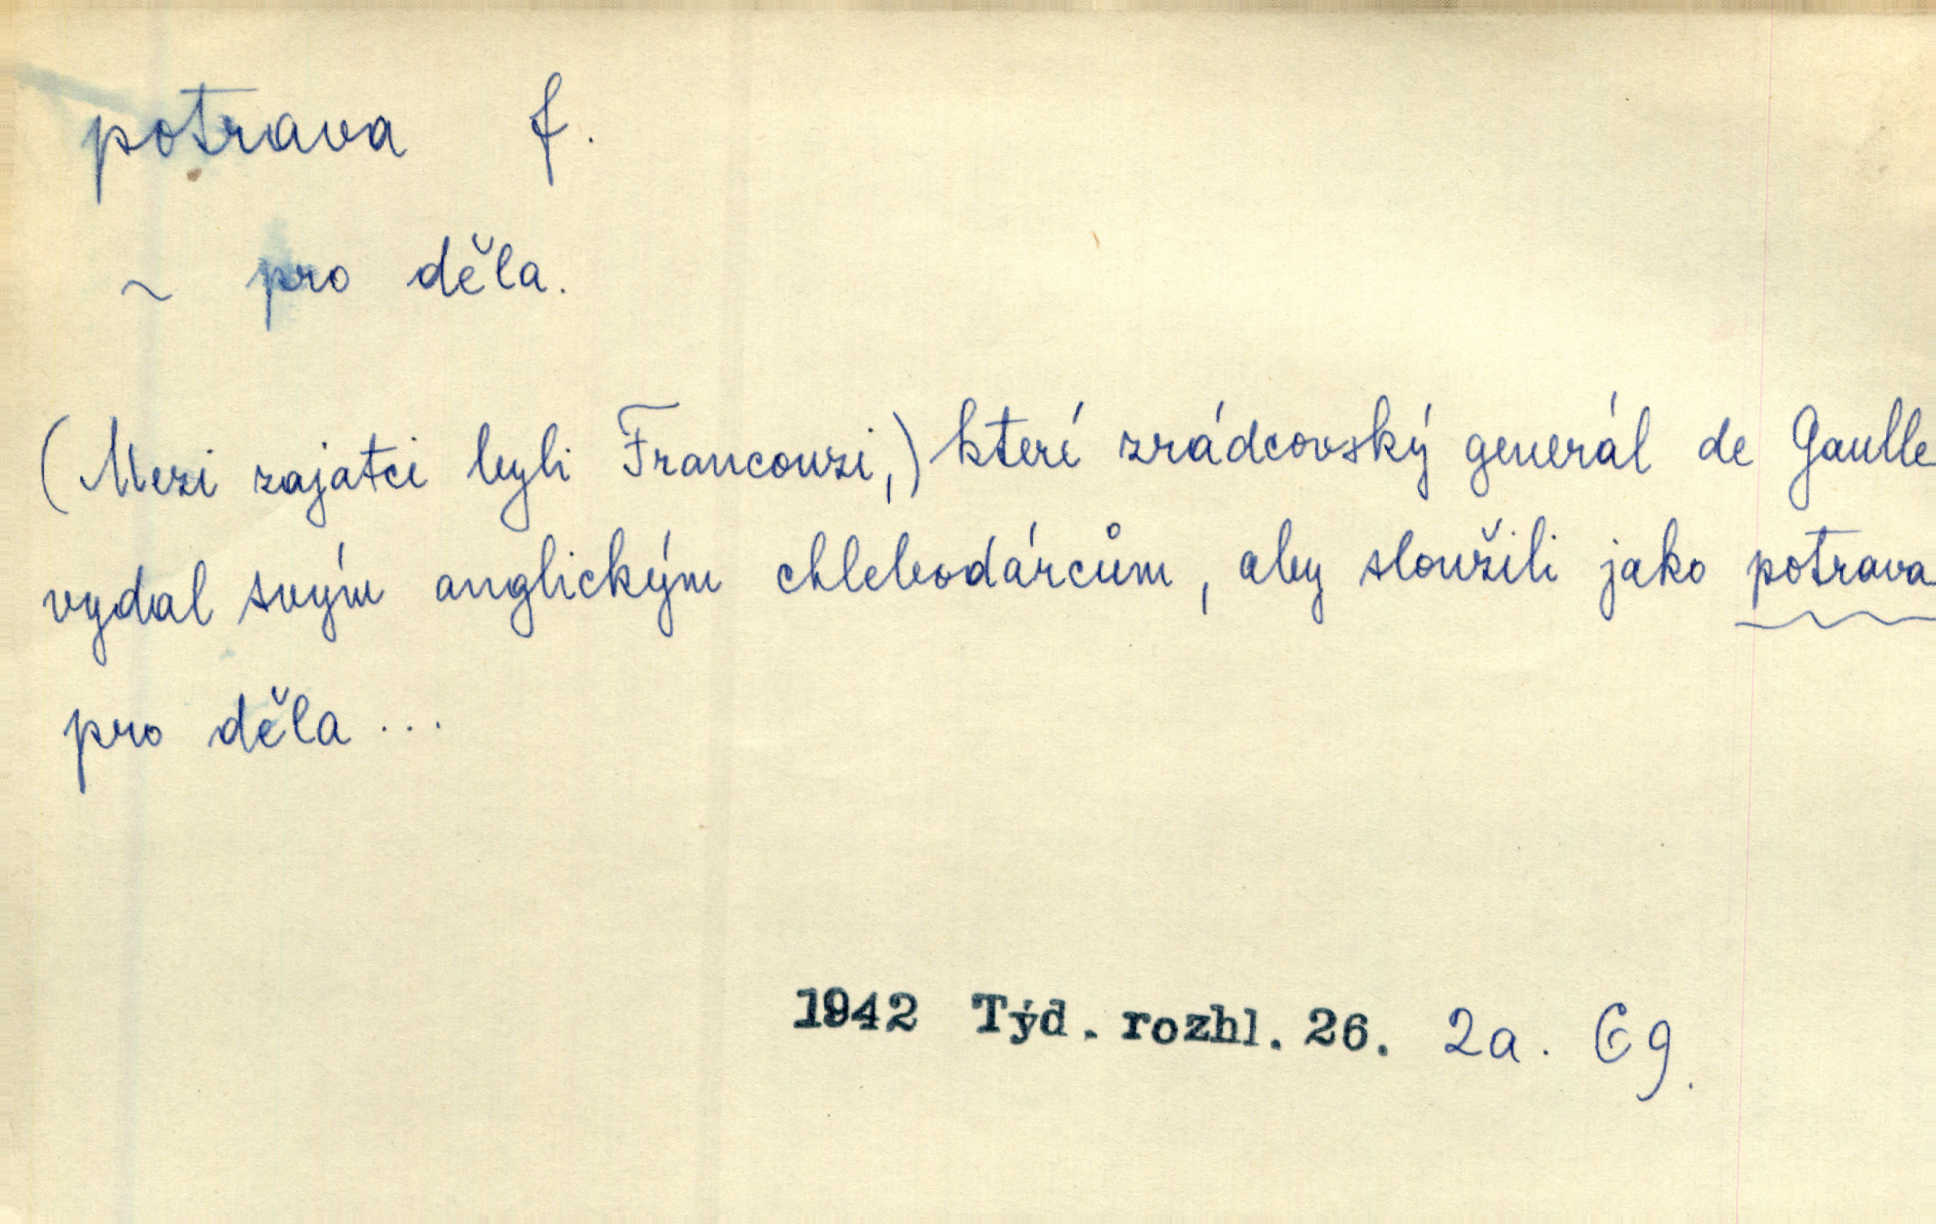 potrava f.
~ pro děla.
(Mezi zajatci byli Francouzi,) které zrádcovský generál de Gaulle
vydal svým anglickým chlebodárcům, aby sloužili jako potrava
pro děla...
1942 Týd. rozhl. 26. 2a. Eg.